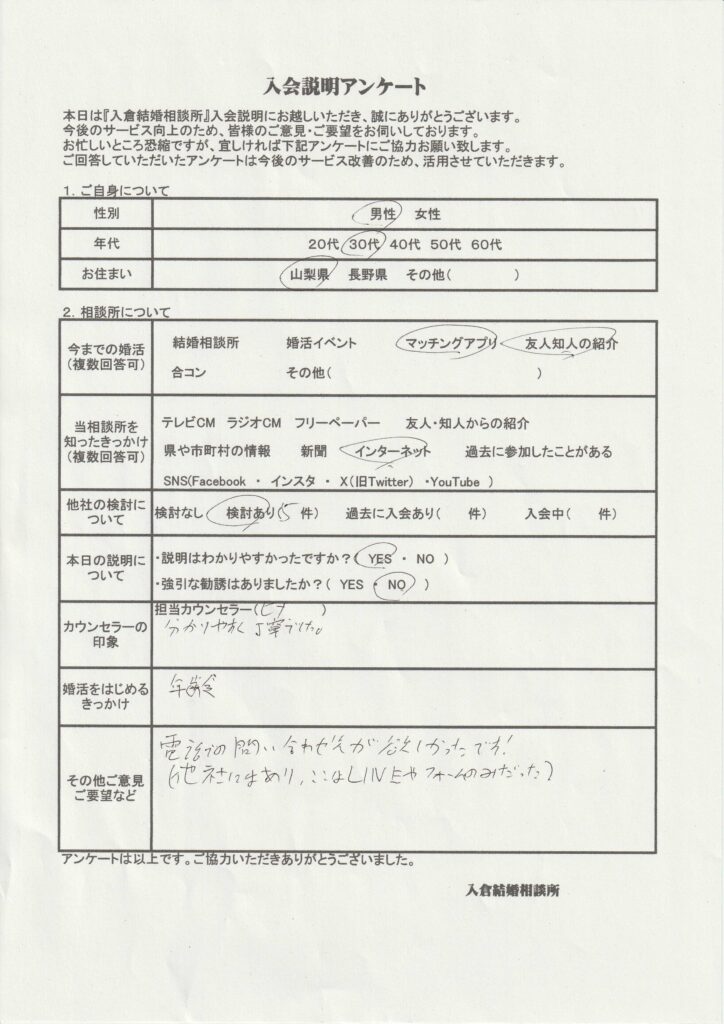 入会説明アンケート
本日は『入倉結婚相談所』入会説明にお越しいただき、誠にありがとうございます。
今後のサービス向上のため、皆様のご意見・ご要望をお伺いしております。
お忙しいところ恐縮ですが、宜しければ下記アンケートにご協力お願い致します。
ご回答していただいたアンケートは今後のサービス改善のため、活用させていただきます。
1. ご自身について
性別 男性 女性
年代 20代 30代 40代 50代 60代
お住まい 山梨県 長野県 その他( )
2. 相談所について
今までの婚活 結婚相談所 婚活イベント マッチングアプリ 友人知人の紹介
(複数回答可) 合コン その他( )
当相談所を テレビCM ラジオCM フリーペーパー 友人・知人からの紹介
知ったきっかけ 県や市町村の情報 新聞 インターネット 過去に参加したことがある
(複数回答可) SNS(Facebook ・ インスタ ・ X(旧Twitter) ・YouTube )
他社の検討に
ついて
検討なし 検討あり(5 件) 過去に入会あり( 件) 入会中( 件)
本日の説明に ・説明はわかりやすかったですか?( YES ・ NO )
ついて ・強引な勧誘はありましたか?( YES ・ NO )
カウンセラーの
印象
担当カウンセラー(ヒナ )
分かりやすく丁寧でした。
婚活をはじめる
きっかけ
年齢
その他ご意見
ご要望など
電話での問い合わせが欲しかったです!
(他社にはあり、ここはLINEやフォームのみだった)
アンケートは以上です。ご協力いただきありがとうございました。
入倉結婚相談所